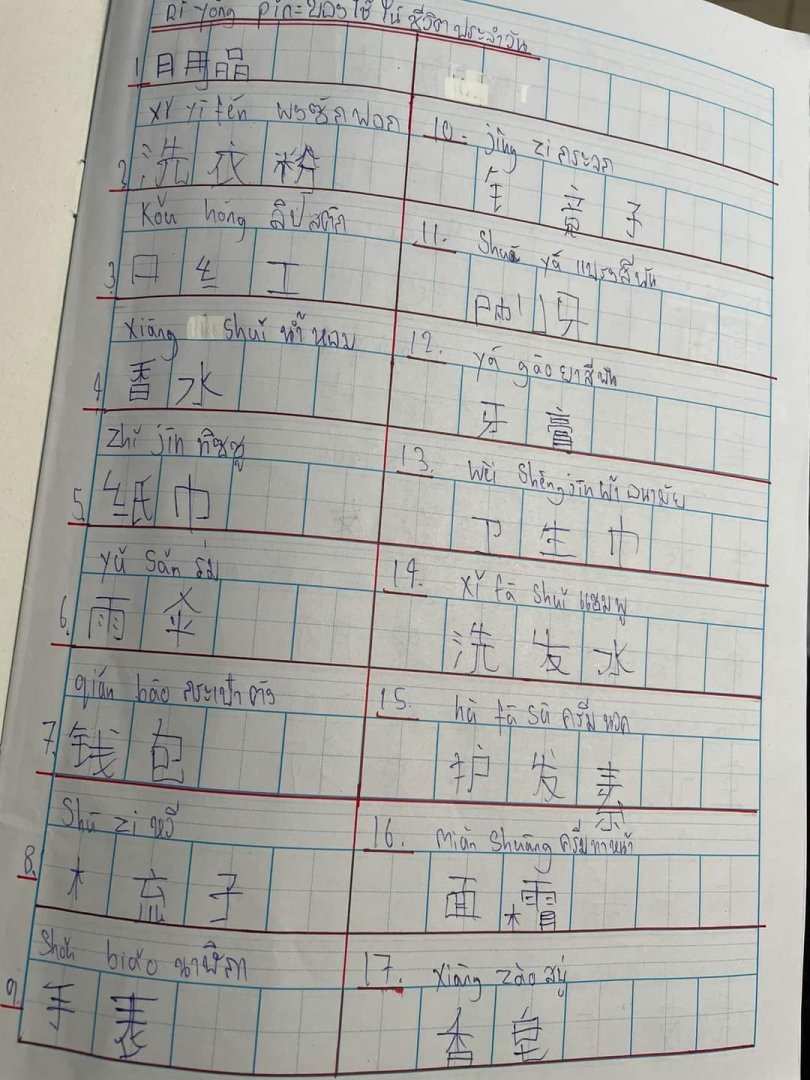 Rì yòng pǐn = ของใช้ในชีวิตประจำวัน
1 日用品
xǐ yī fěn ผงซักฟอก
2. 洗衣粉
Kǒu hóng ลิปสติก
3. 口红
xiāng shuǐ น้ำหอม
4 香水
Zhǐ jīn ทิชชู
5. 纸巾
yǔ sǎn ร่ม
6. 雨伞
qián bāo กระเป๋าตัง
7. 钱包
Shū zi หวี
8. 梳子
Shǒu biǎo นาฬิกา
9. 手表
10. jìng zi กระจก
镜子
11. Shuā yá แปรงสีฟัน
刷牙
12. yá gāo ยาสีฟัน
牙膏
13. Wèi Shēng jīn ผ้าอนามัย
卫生巾
14. Xǐ fà Shuǐ แชมพู
洗发水
15. hù fà sù ครีมนวด
护发素
16. Miàn Shuāng ครีมทาหน้า
面霜
17. Xiāng zào สบู่
香皂